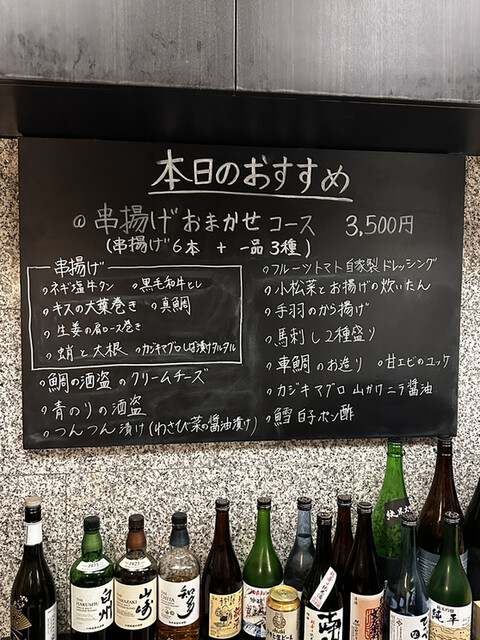 本日のおすすめ
串揚げおまかせコース 3,500円
(串揚げ6本 + 一品3種)
串揚げ
ネギ塩牛タン 黒毛和牛ヒレ
キスの大葉巻き 真鯛
生姜の肩ロース巻き
蛸と大根 カジキマグロしば漬けタルタル
鯛の酒盗のクリームチーズ
青のりの酒盗
つんつん漬け(わさび菜の醤油漬け)
フルーツトマト自家製ドレッシング
小松菜とお揚げの炊いたん
手羽のから揚げ
馬刺し2種盛り
車鯛のお造り 甘エビのユッケ
カジキマグロ 山かけニラ醤油
鱈白子ポン酢
白州
山崎
知多